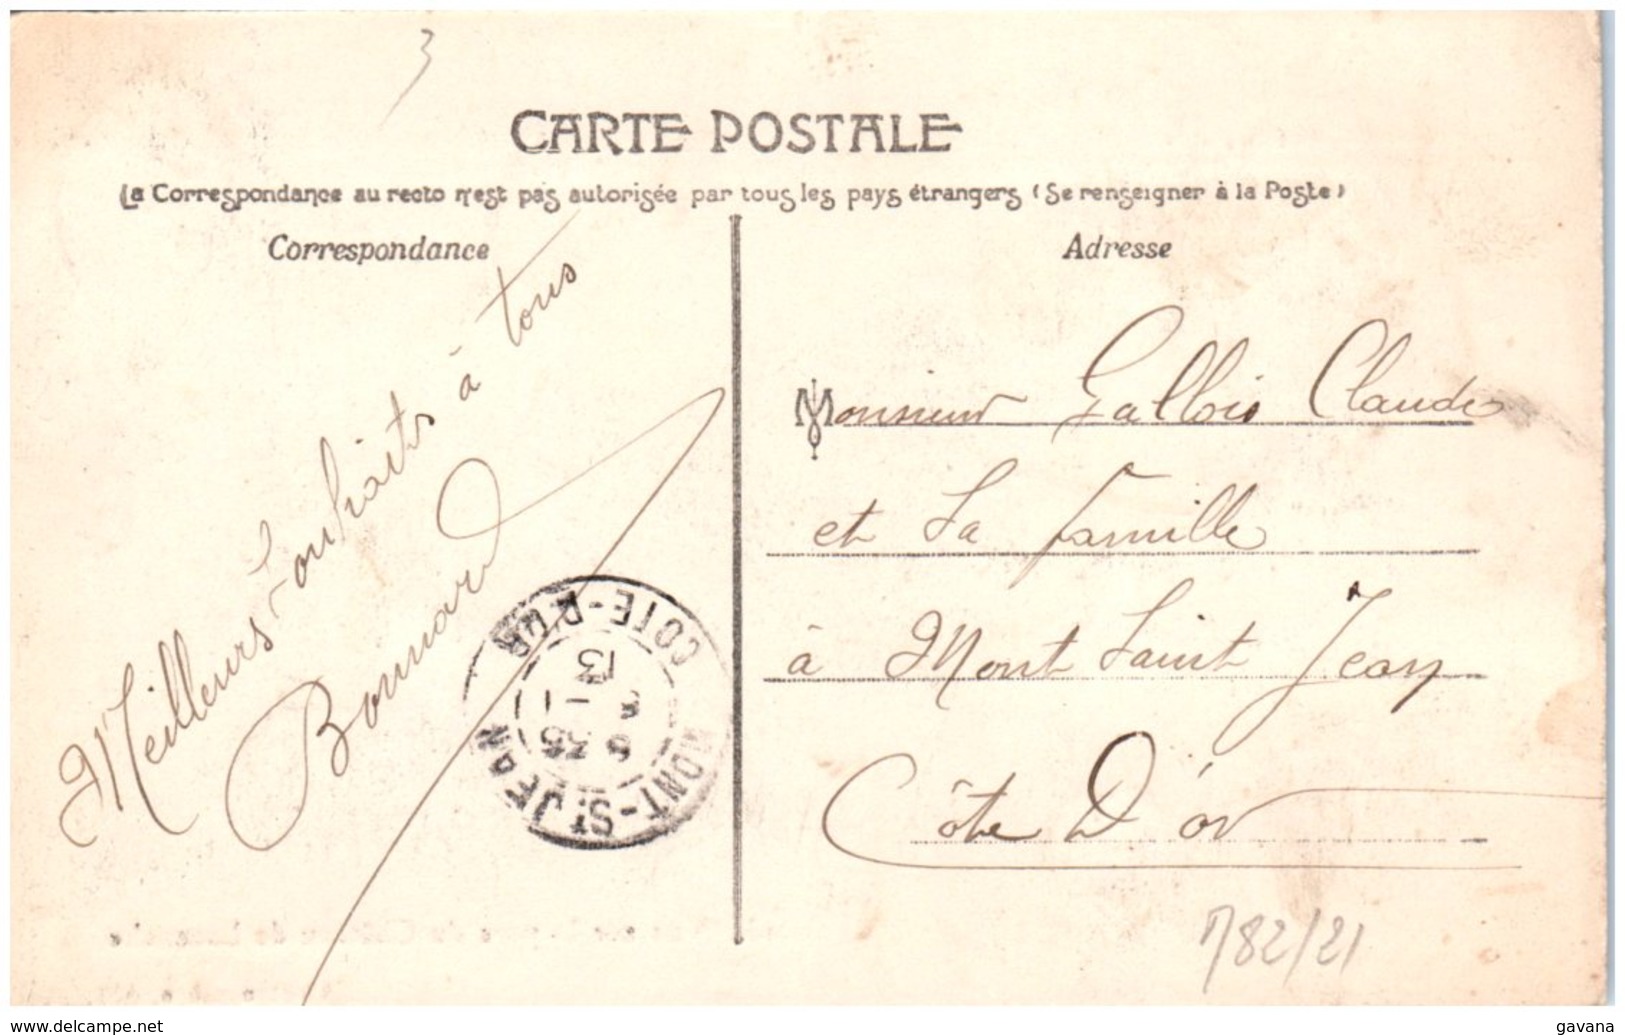 3
CARTE POSTALE
La Correspondance au recto n'est pas autorisée par tous les pays étrangers (Se renseigner à la Poste)
Correspondance
Adresse
Meilleurs souhaits à tous
Monsieur Gallois Claude
et sa famille
à Mont Saint Jean
Côte D'or
MONT-ST JEAN
COTE-D'OR
13
782/21
www.delcampe.net
gavana